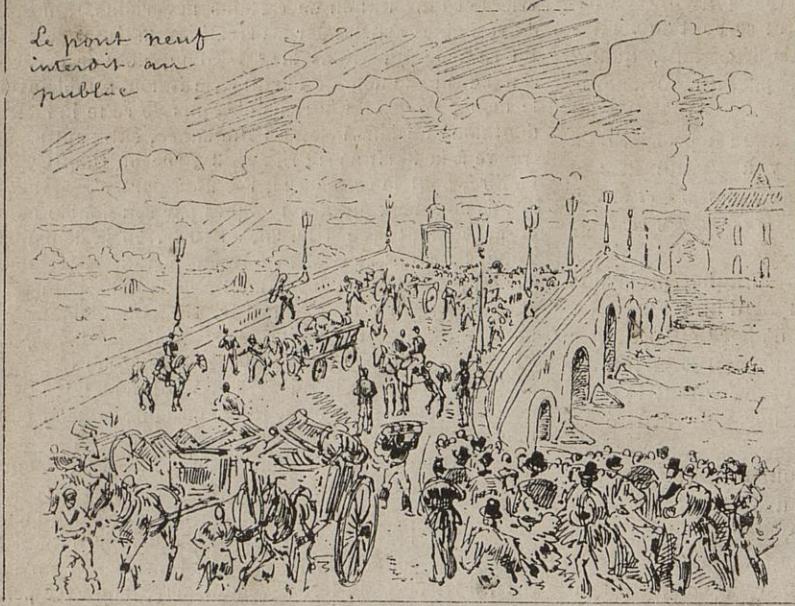 Le pont neuf
interdit au
public